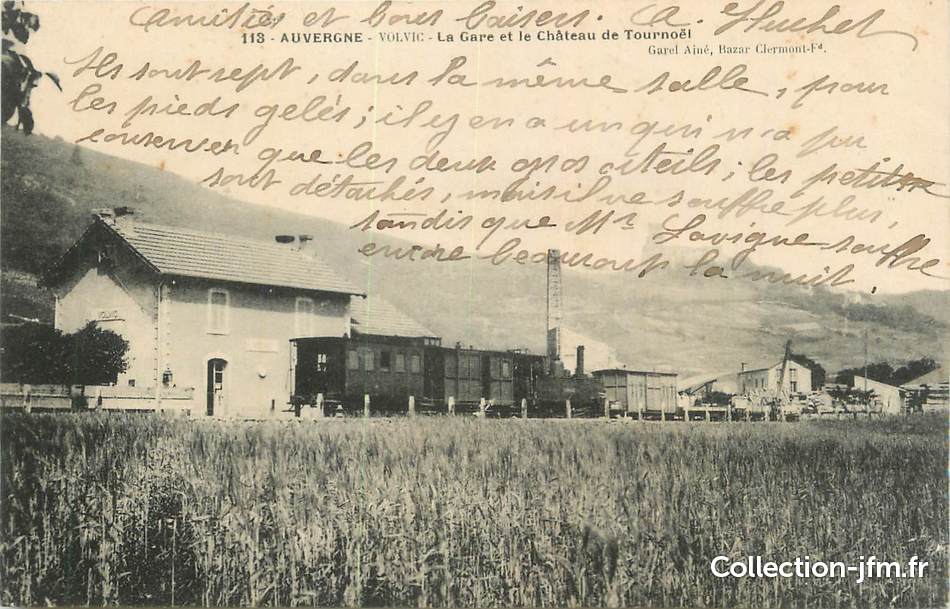 Amitiés et bons baisers. A. Huchet
113 - AUVERGNE - VOLVIC - La Gare et le Château de Tournoël
Garel Ainé, Bazar Clermont-Fd.
Ils sont sept, dans la même salle, pour
les pieds gelés; il y en a un qui n'a pu
conserver que les deux gros orteils; les petits
sont détachés, mais il ne souffre plus,
tandis que Mr Lavigne souffre
encore beaucoup la nuit
VOLVIC
Collection-jfm.fr